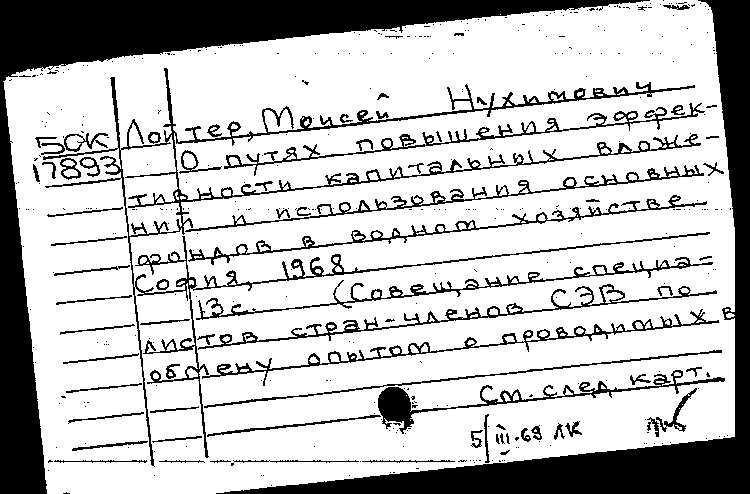 БОК Лойтер, Моисей Нухимович
17893 О путях повышения эффек-
тивности капитальных вложе-
ний и использования основных
фондов в водном хозяйстве.
София, 1968.
13 с. (Совещание специа=
листов стран-членов СЭВ по
обмену опытом о проводимых в
См. след. карт.
5/III-69 ЛК